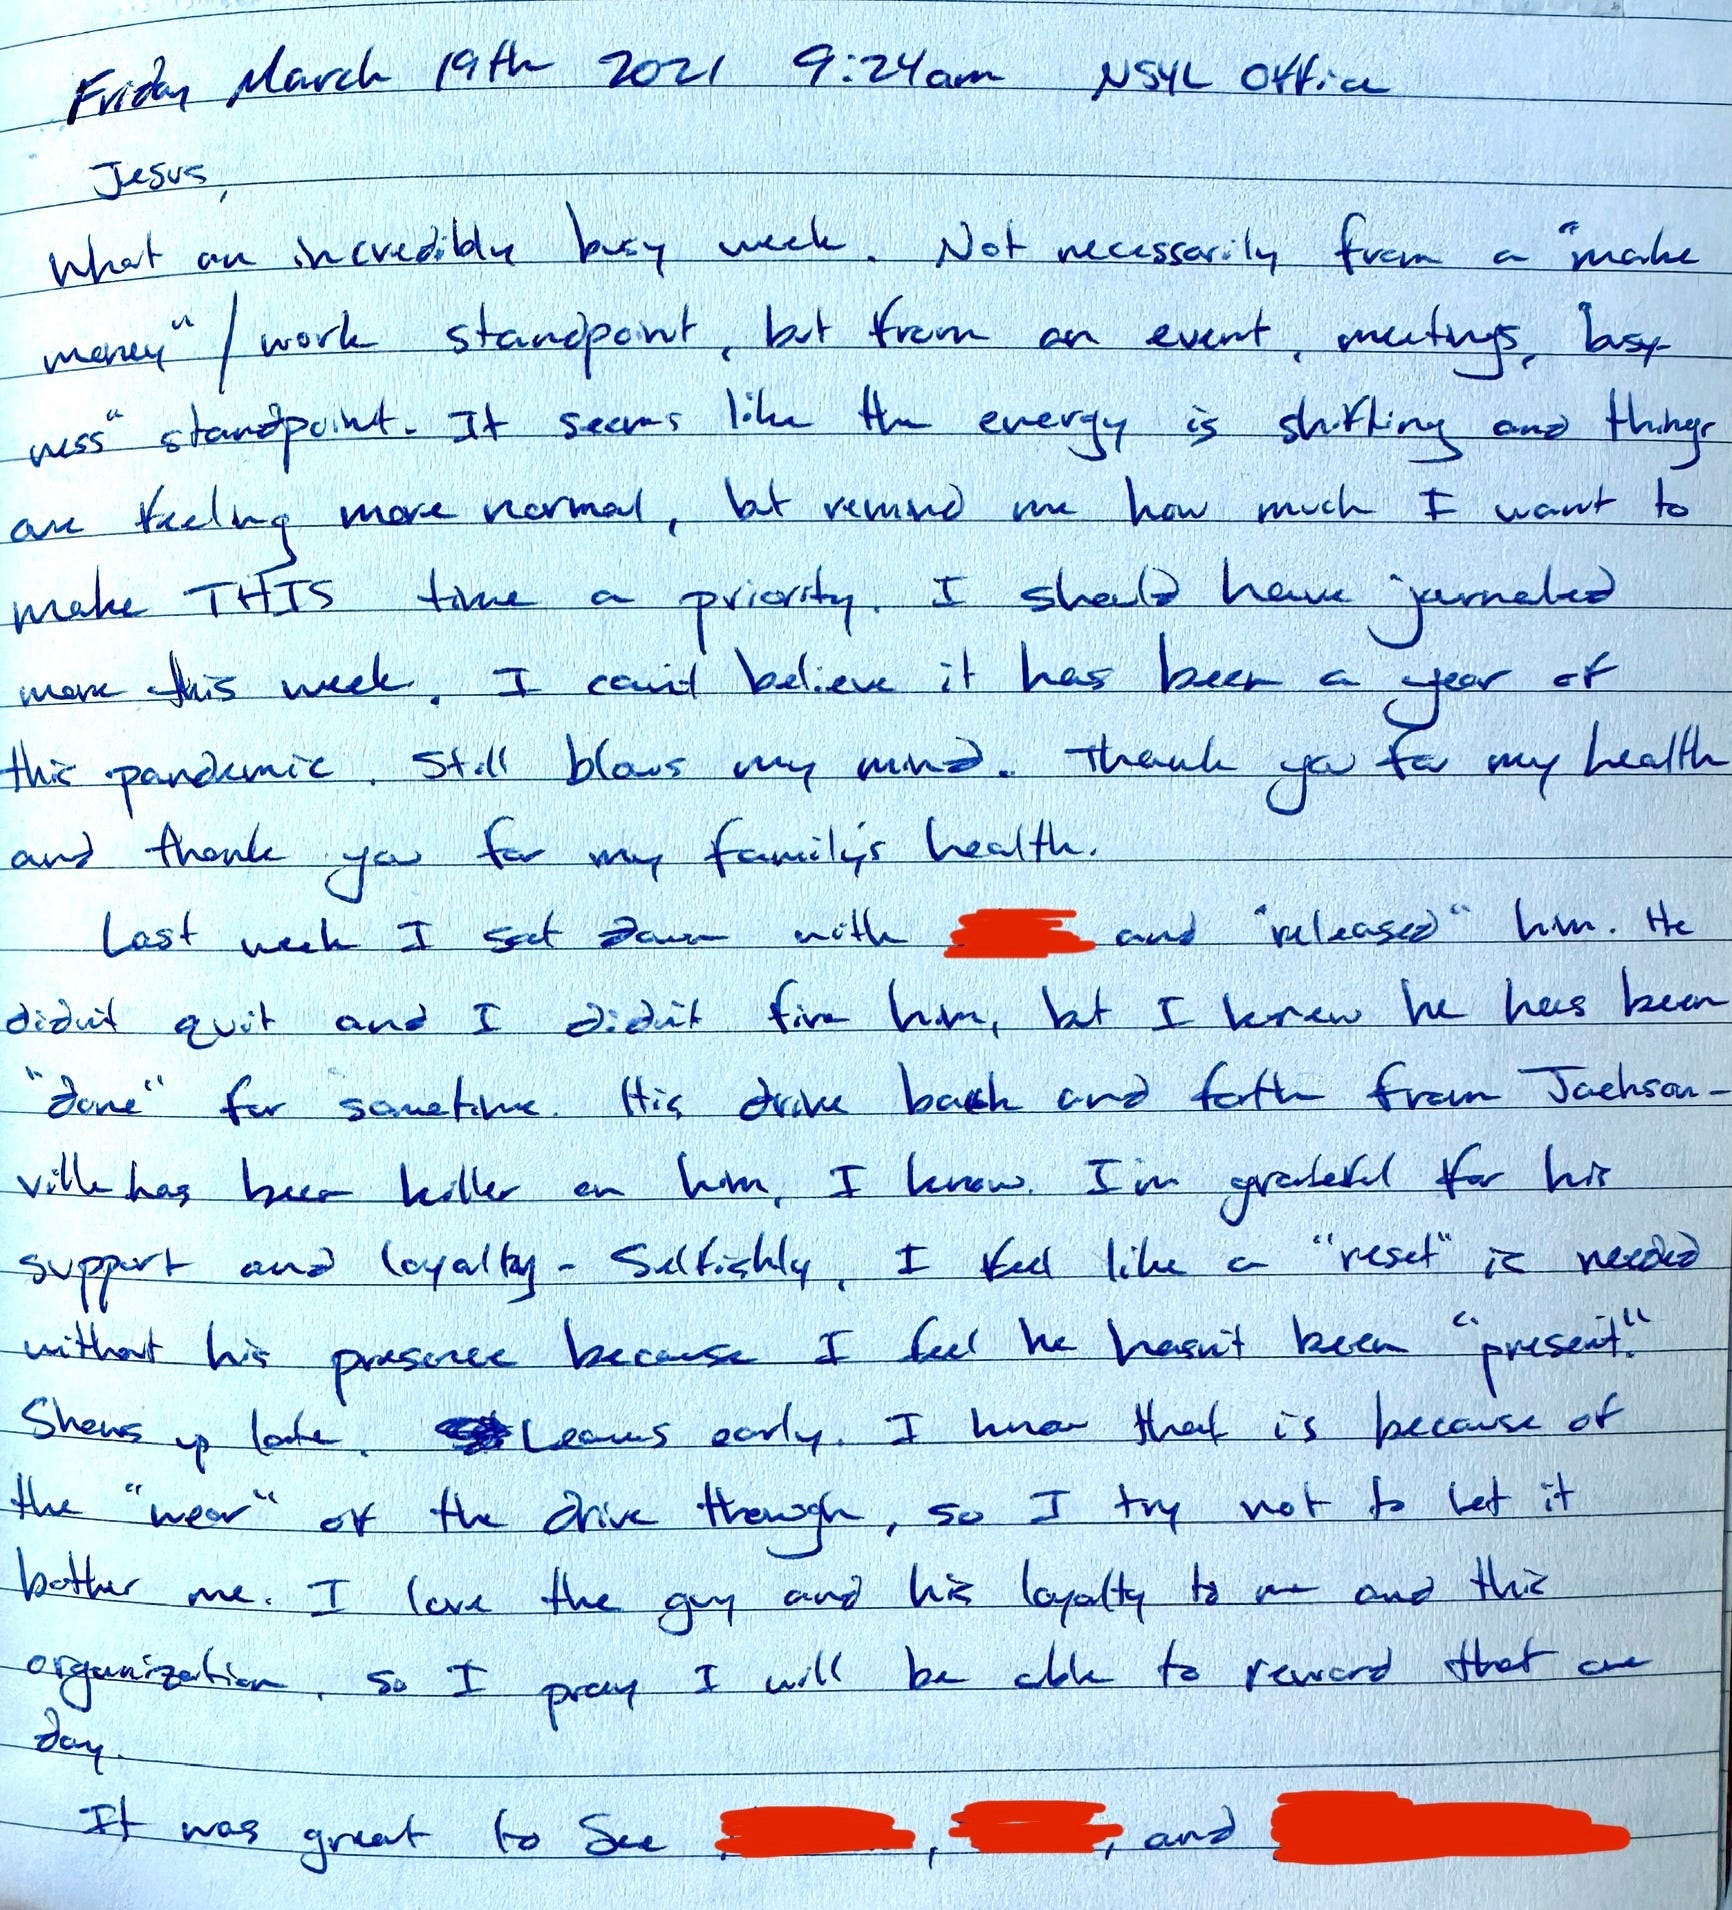 Friday March 19th 2021 9:24am NSYL Office
Jesus,
What an incredibly busy week. Not necessarily from a "make
money" / work standpoint, but from an event, meetings, busy-
ness" standpoint. It seems like the energy is shifting and things
are feeling more normal, but remind me how much I want to
make THIS time a priority. I should have journaled
more this week. I can't believe it has been a year of
this pandemic. Still blows my mind. Thank you for my health
and thank you for my family's health.
Last week I sat down with and "released" him. He
didn't quit and I didn't fire him, but I knew he has been
"done" for sometime. His drive back and forth from Jackson-
ville has been killer on him, I know. I'm grateful for his
support and loyalty - Selfishly, I feel like a "reset" is needed
without his presence because I feel he hasn't been "present."
Shows up late. Leaves early. I know that is because of
the "wear" of the drive though, so I try not to let it
bother me. I love the guy and his loyalty to me and this
organization, so I pray I will be able to reward that one
day.
It was great to see , , and